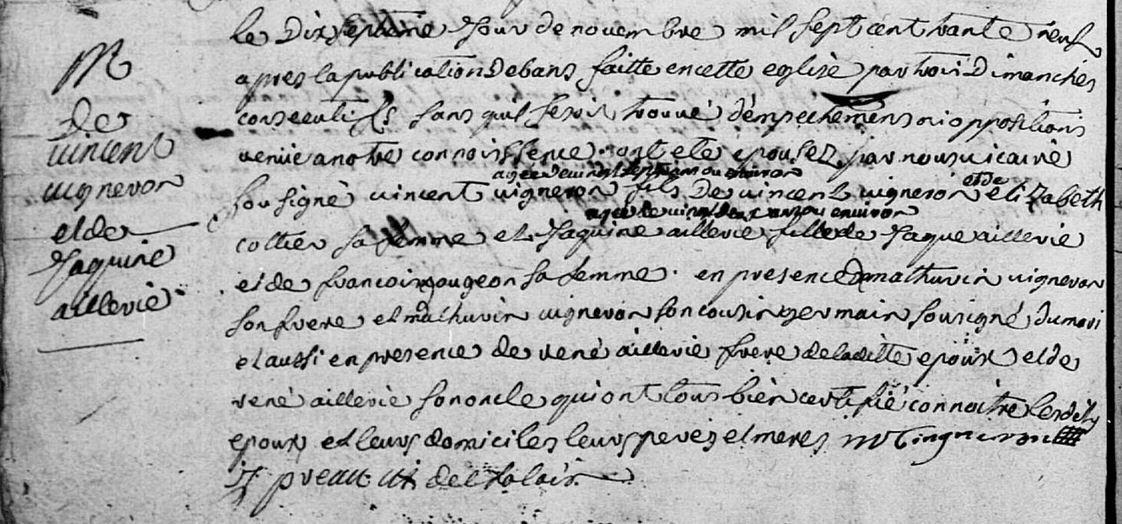 M
de
vincent
vigneron
et de
Jaquine
aillerie
le dix septieme Jour de novembre mil sept cent trante neuf
apres la publication de bans faitte en cette eglise par trois dimanches
consecutifs sans quil se soit trouvé dempechemens ni oppositions
venüe a notre connoissence ont eté epousez par nous vicaire
agee de vingt sept ans ou environ
sousigné vincent vigneron fils de vincent vigneron et de elizabeth
agee de vingt deux ans ou environ
collier sa femme et Jaquine aillerie fille de Jaque aillerie
et de francoise gougeon sa femme. en presence de mathurin vigneron
son frere et mathurin vigneron son cousin germain sousigné du mari
et aussi en presence de rené aillerie frere de laditte epoux et de
rené aillerie son oncle qui ont tous bien certifié connoitre lesdits
epoux et leurs domiciles leurs peres et meres m vigneron
preau